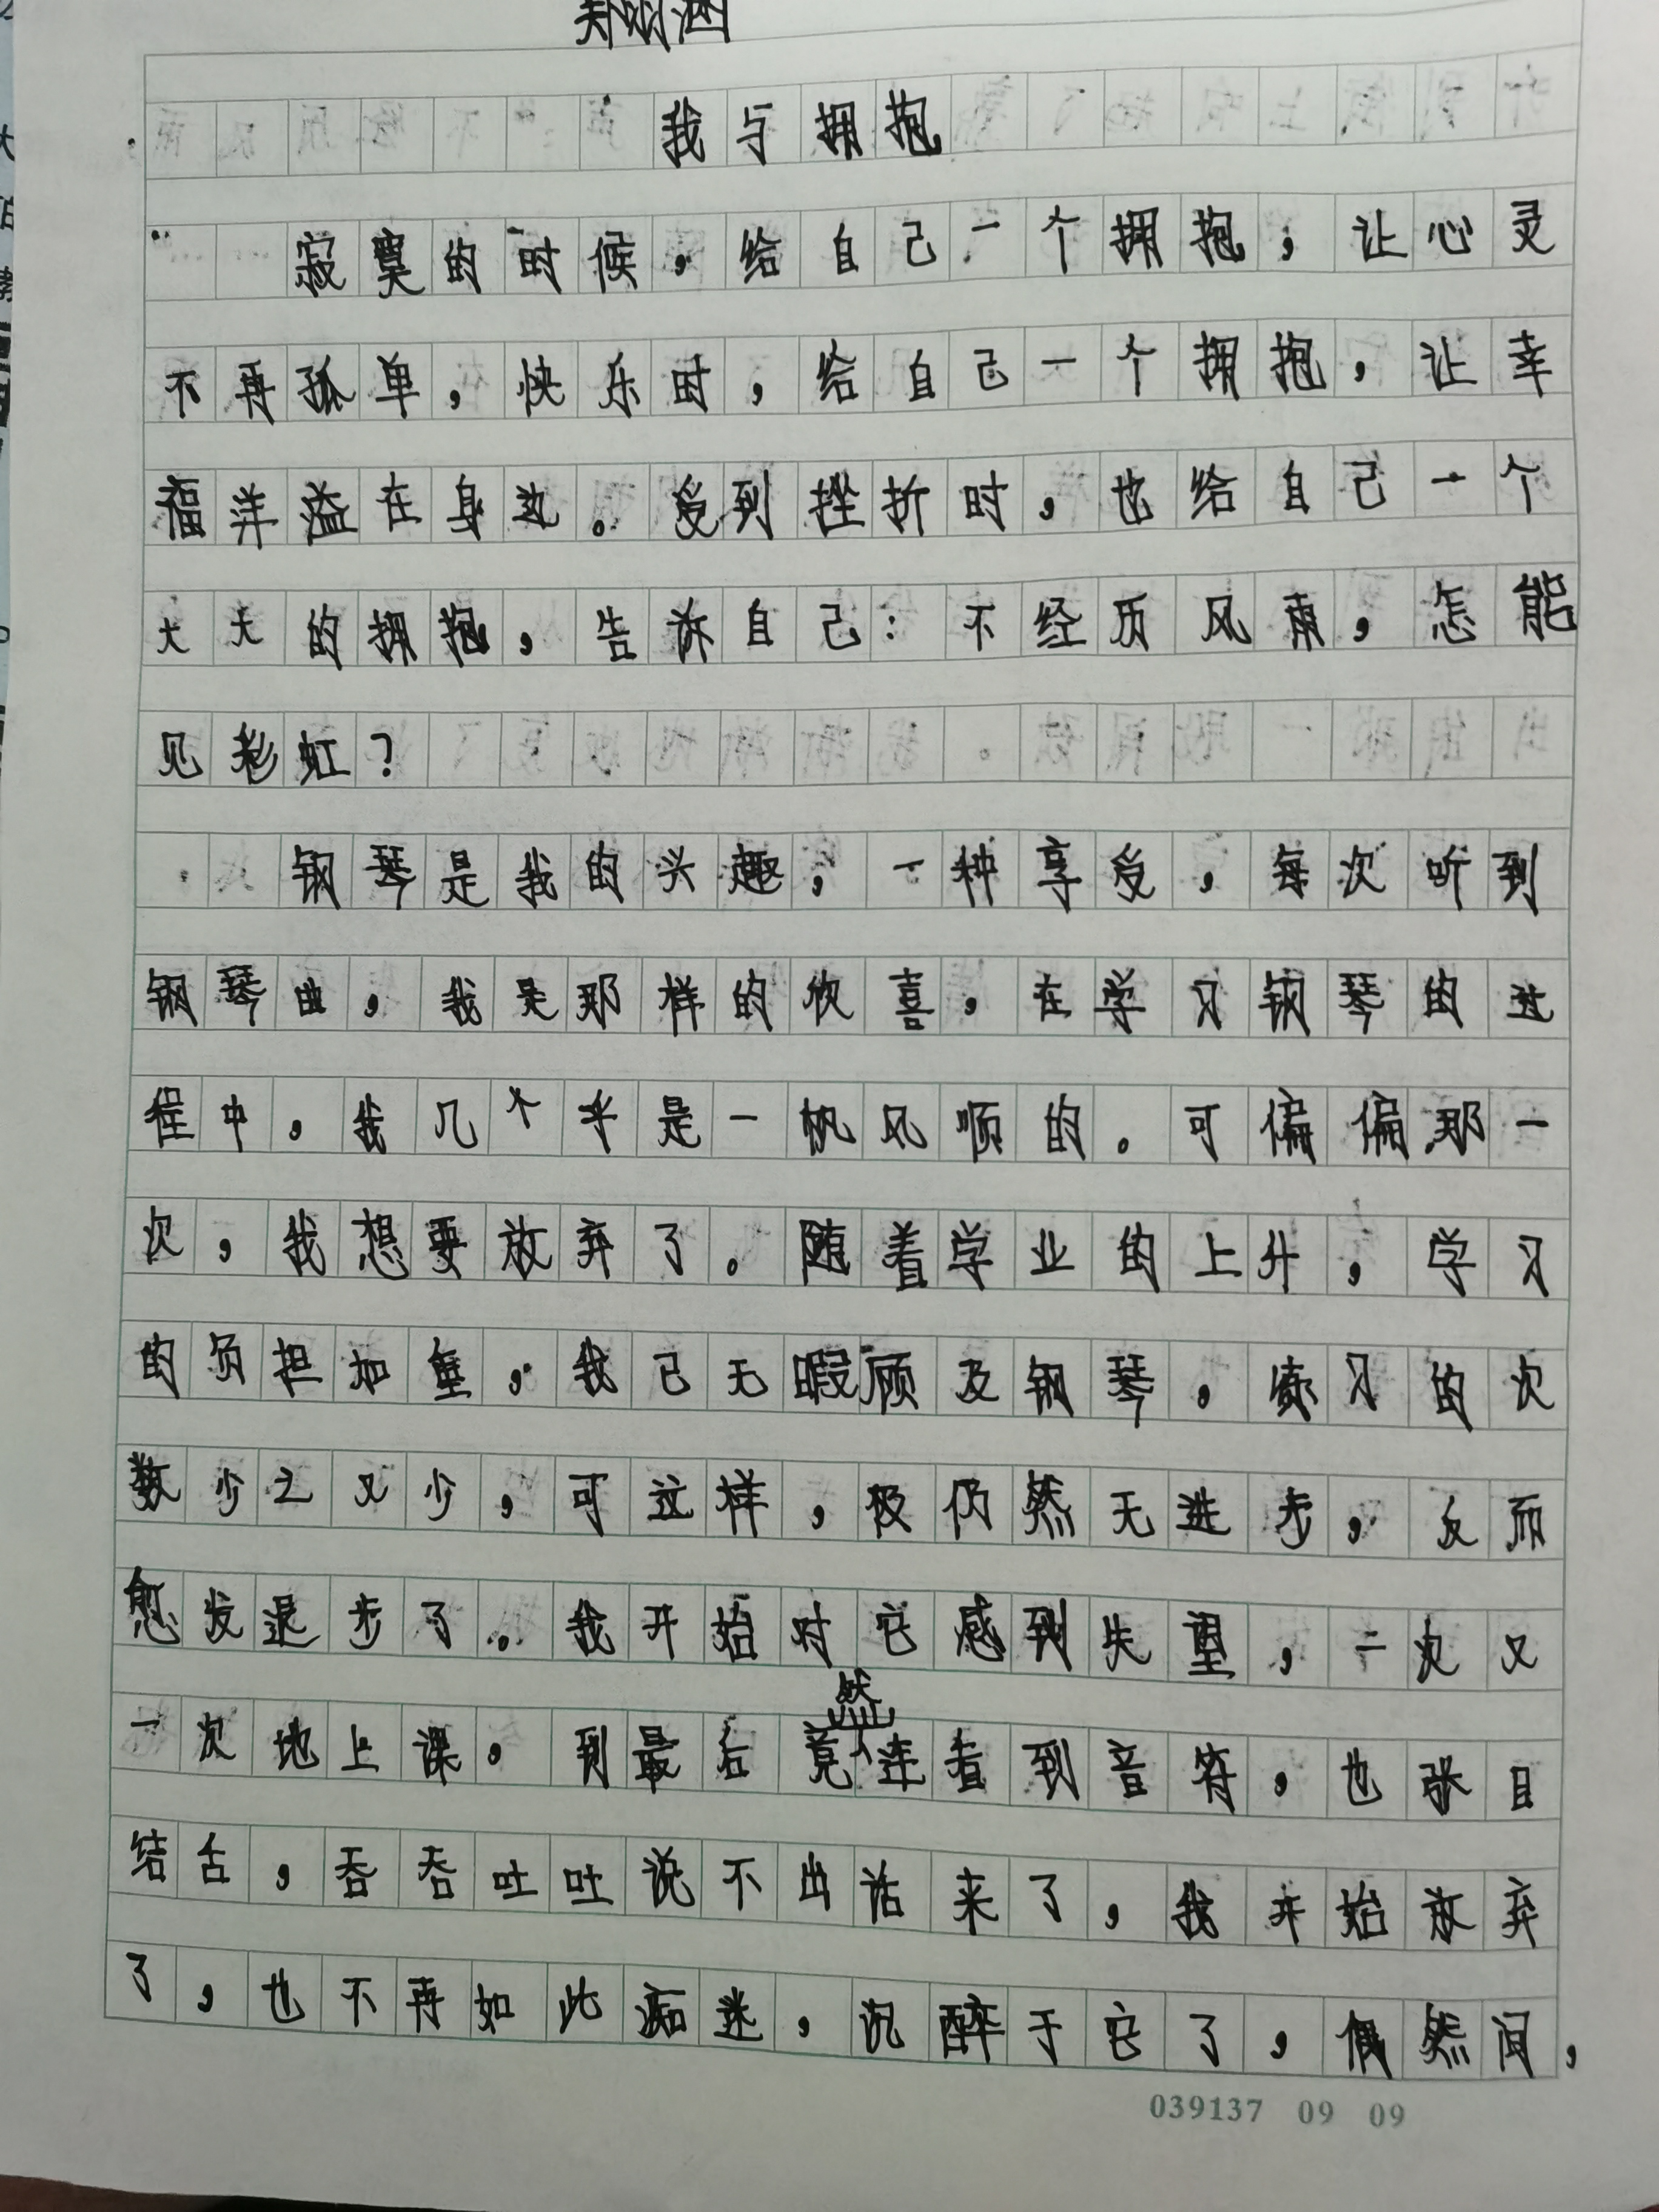 我与拥抱
寂寞的时候，给自己一个拥抱，让心灵
不再孤单，快乐时，给自己一个拥抱，让幸
福洋溢在身边。受到挫折时，也给自己一个
大大的拥抱，告诉自己：不经历风雨，怎能
见彩虹？
钢琴是我的兴趣，一种享受，每次听到
钢琴曲，我是那样的欣喜，在学习钢琴的过
程中，我几个乎是一帆风顺的。可偏偏那一
次，我想要放弃了。随着学业的上升，学习
的负担加重，我已无暇顾及钢琴，练习的次
数少之又少，可这样，极仍然无进步，反而
愈发退步了。我开始对它感到失望，一次又
一次地上课，到最后竟然连看到音符，也张目
结舌，吞吞吐吐说不出话来了，我开始放弃
了，也不再如此痴迷，沉醉于它了，偶然间，
039137 09 09